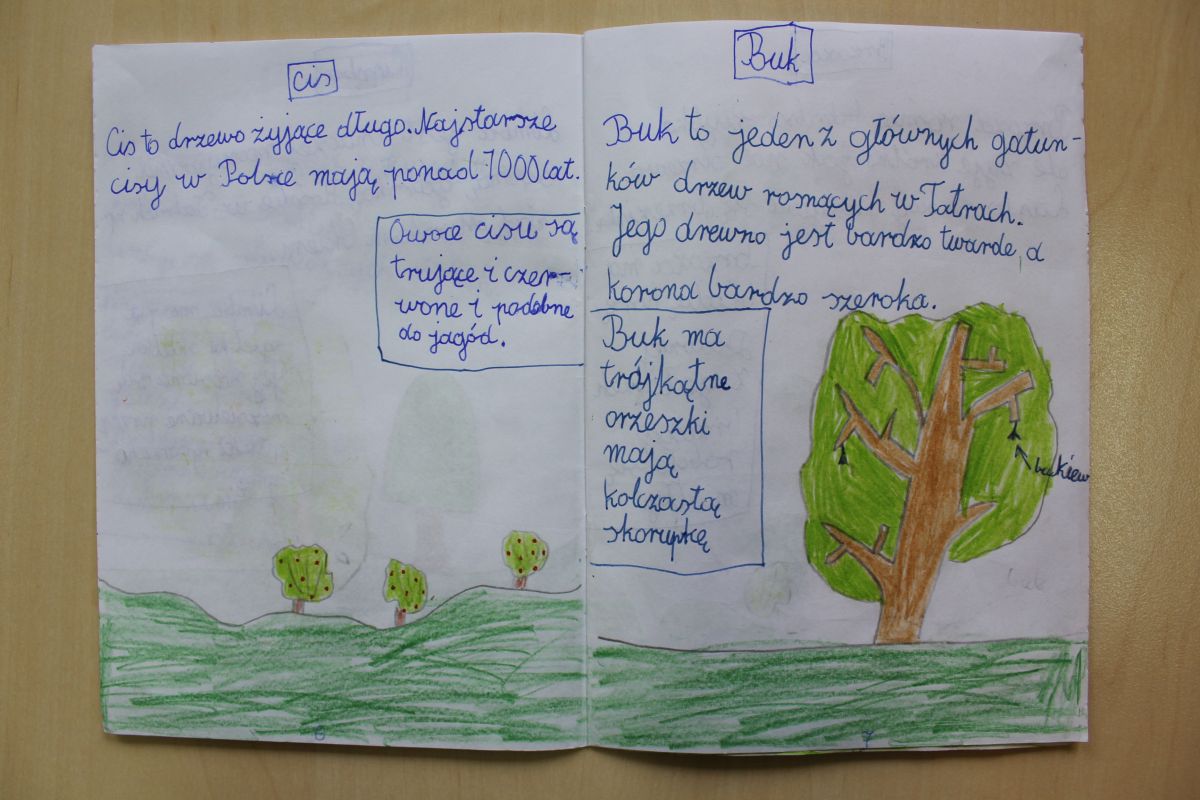 Cis
Cis to drzewo żyjące długo. Najstarsze
cisy w Polsce mają ponad 1000 lat.
Owoce cisu są
trujące i czer-
wone i podobne
do jagód.
6
Buk
Buk to jeden z głównych gatun-
ków drzew rosnących w Tatrach.
Jego drewno jest bardzo twarde, a
korona bardzo szeroka.
Buk ma
trójkątne
orzeszki
mają
kolczastą
skorupkę
bukiew
7